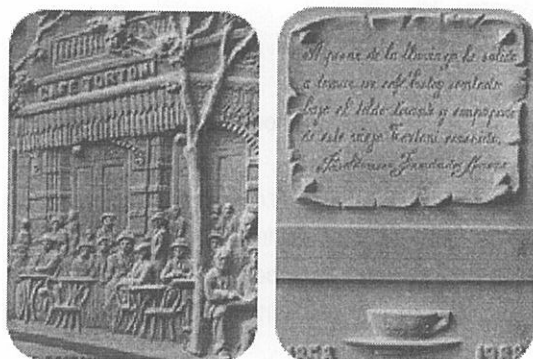 CAFE TORTONI
A pesar de la lluvia yo he salido
a tomar un café. Estoy sentado
bajo el toldo tirante y empapado
de este viejo Tortoni conocido.
Baldomero Fernández Moreno
1858